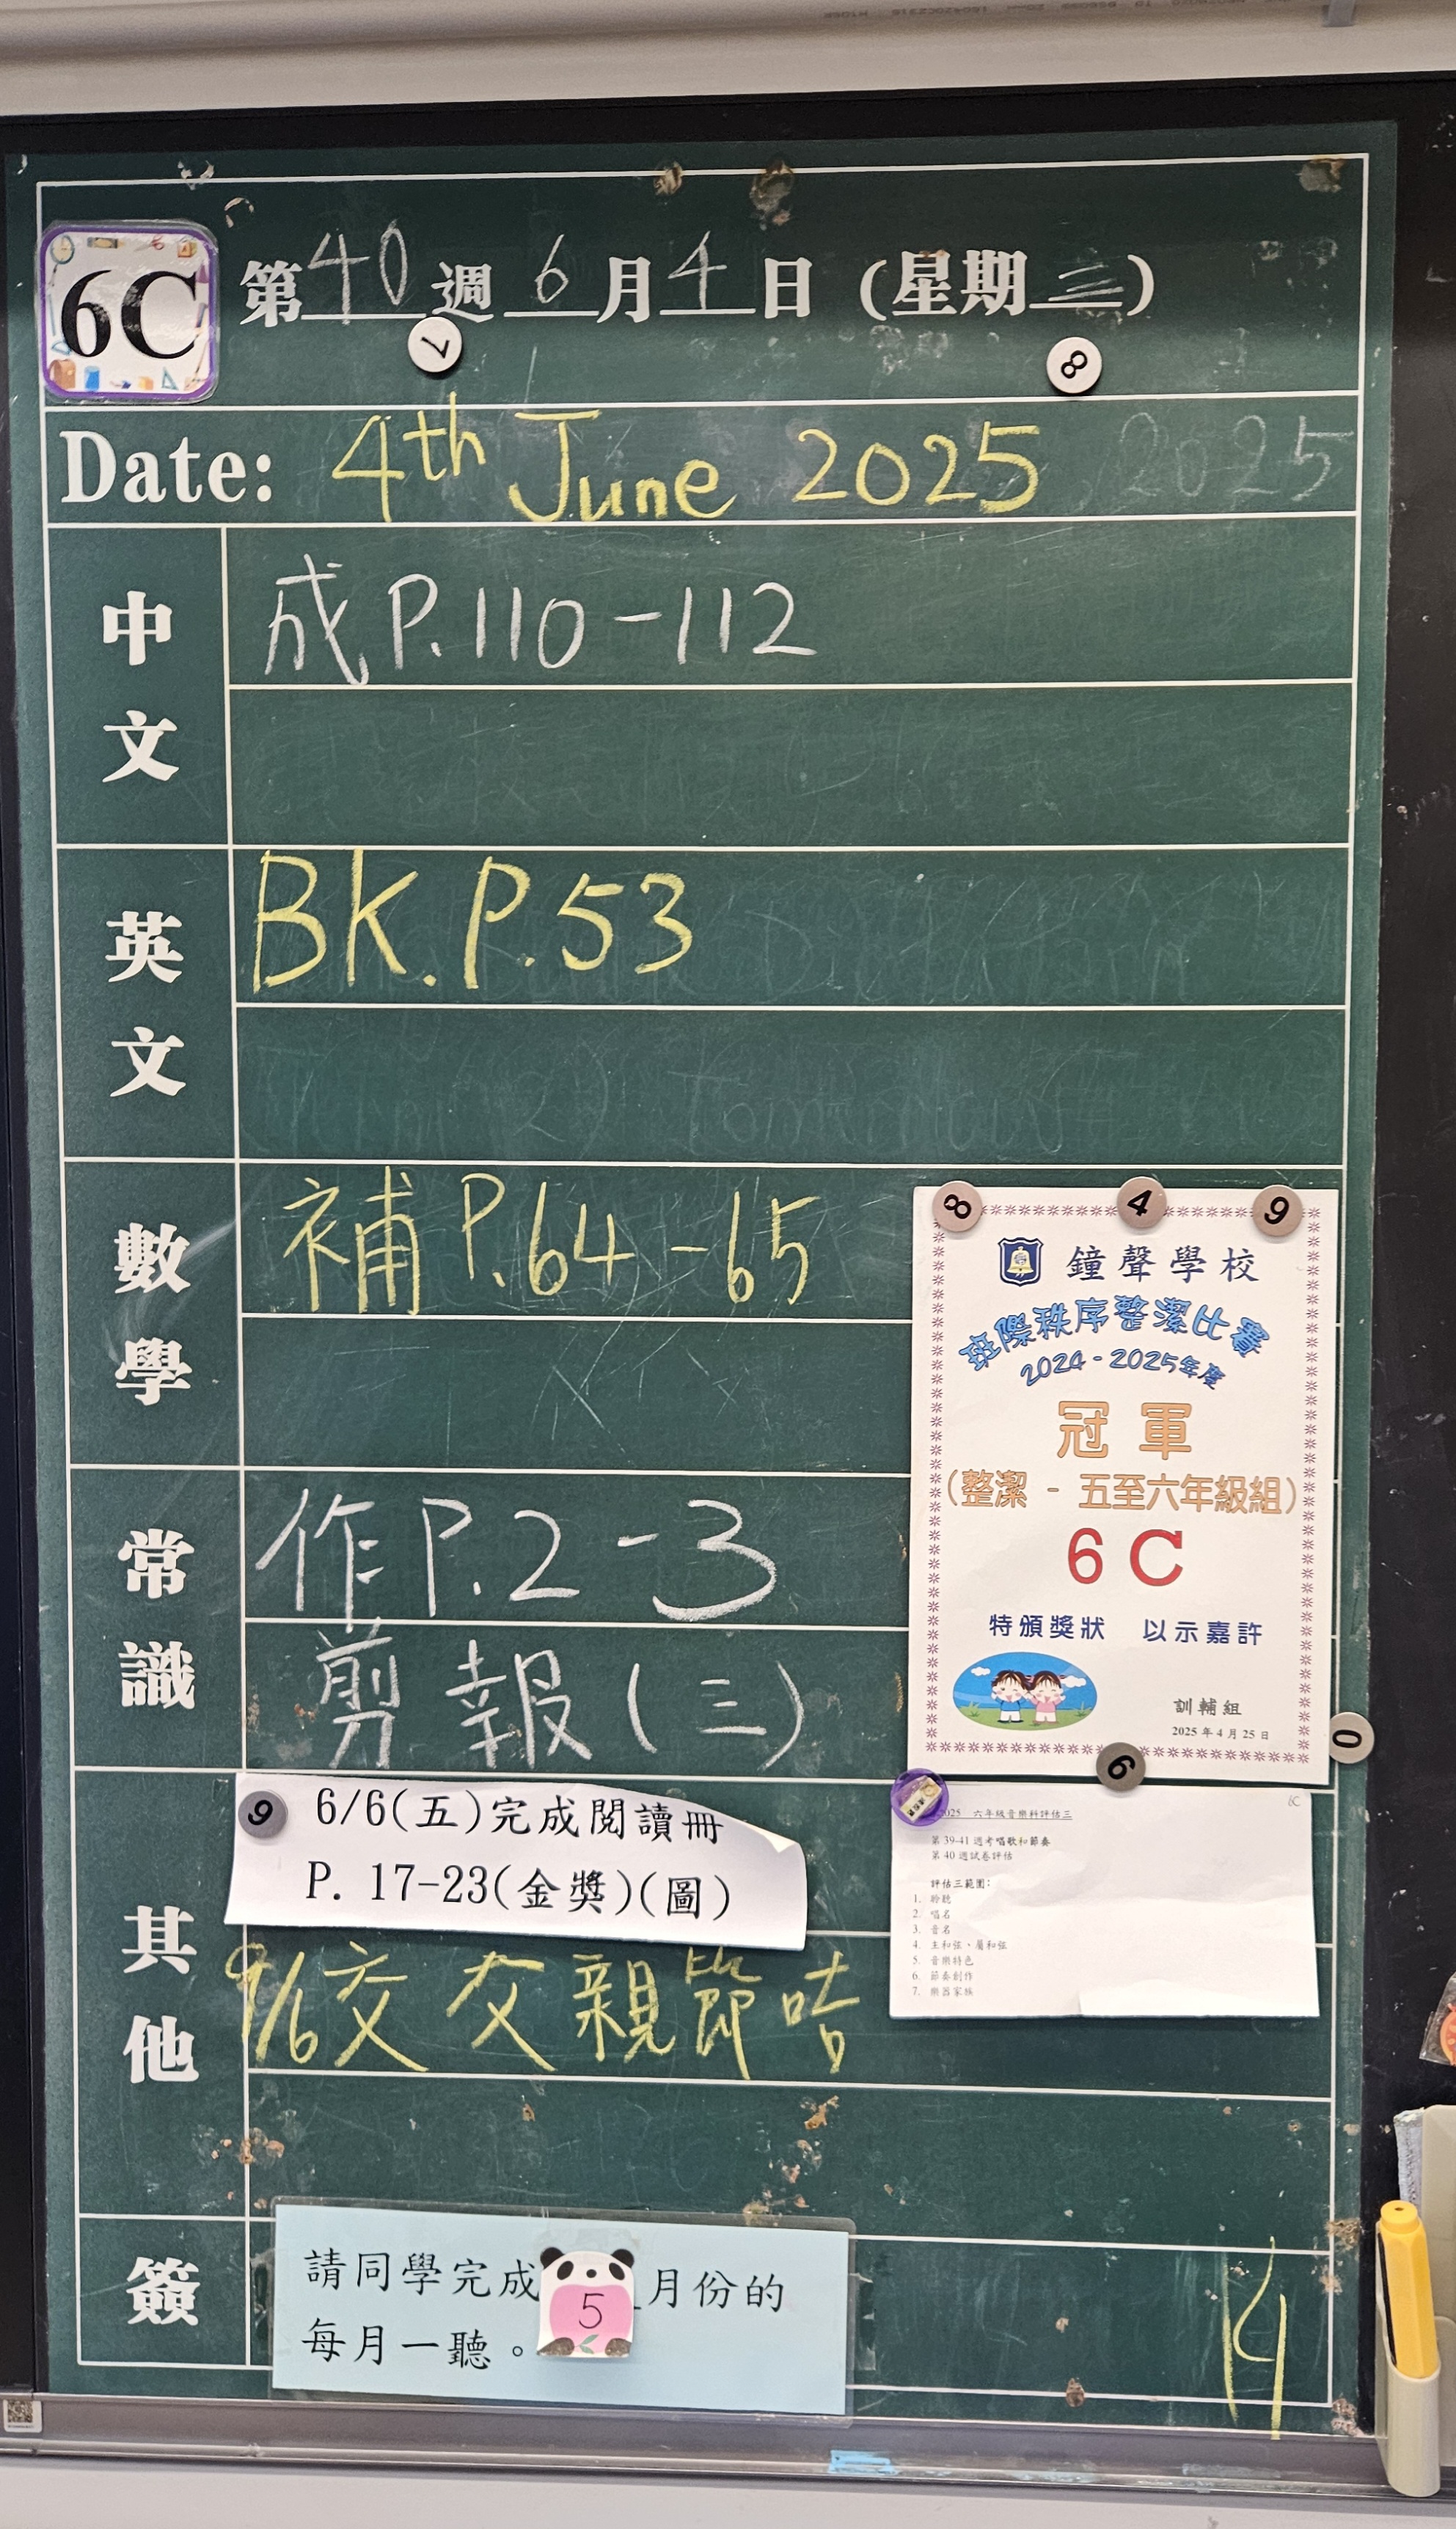 6C 第40週 6月4日 (星期三)
7
8
Date: 4th June 2025 2025
中文 成 P.110-112
英文 BK. P.53
數學 補 P.64-65
常識 作 P.2-3
剪報(三)
8 4 9
鐘聲學校
班際秩序整潔比賽
2024-2025年度
冠軍
(整潔 - 五至六年級組)
6C
特頒獎狀 以示嘉許
訓輔組
2025 年 4 月 25 日
0
6
其他
9
6/6(五)完成閱讀冊
P. 17-23(金獎)(圖)
9/6交父親節咭
6C
025 六年級音樂科評估三
第 39-41 週考唱歌和節奏
第 40 週試卷評估
評估三範圍:
1. 聆聽
2. 唱名
3. 音名
4. 主和弦、屬和弦
5. 音樂特色
6. 節奏創作
7. 樂器家族
簽
請同學完成5月份的
每月一聽。
14